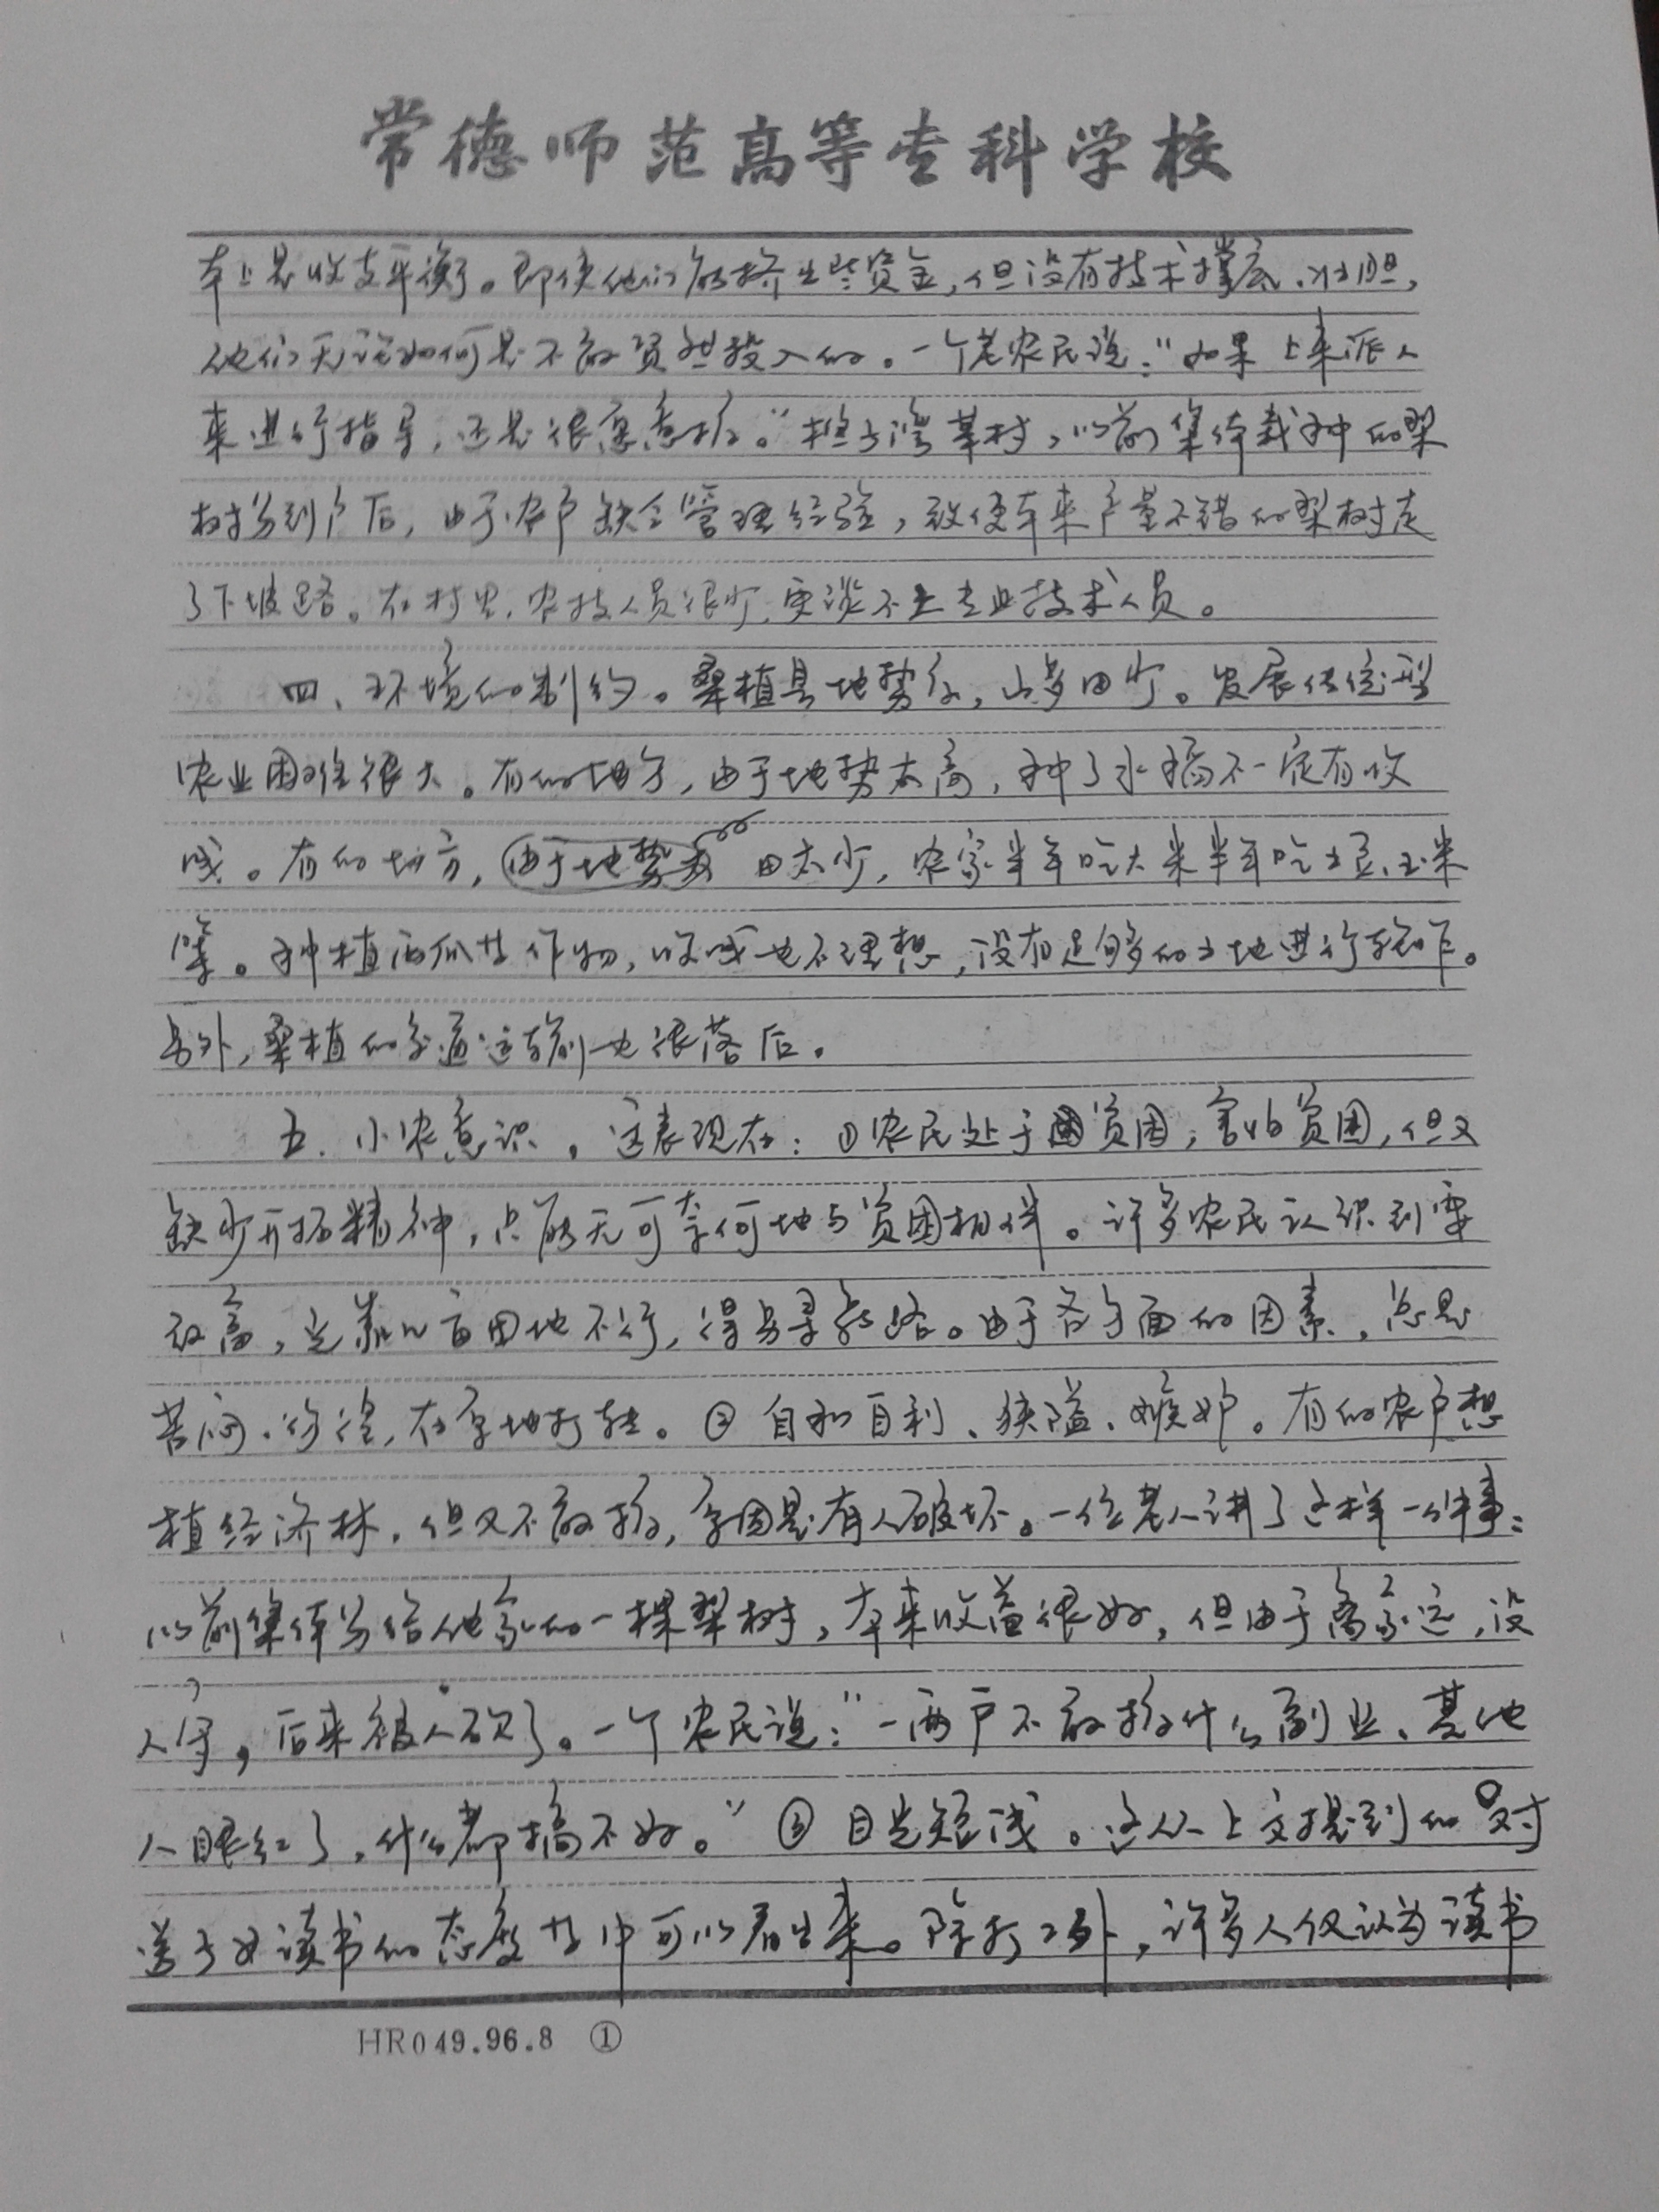 常德师范高等专科学校
本上是收支平衡了。即使他们能挤出些资金,但没有技术撑底、壮胆,
他们无论如何是不敢贸然投入的。一个老农民说:"如果上来派人
来进行指导,还是很愿意搞。"樵子湾某村,以前集体栽种的梨
树分到户后,由于农户缺乏管理经验,致使本来产量不错的梨树走
了下坡路。在村里,农技人员很少,更谈不上专业技术人员。
四、环境的制约。桑植县地势高,山多田少。发展传统型
农业困难很大。有的地方,由于地势太高,种了水稻不一定有收
成。有的地方,由于地势 田太少,农家半年吃大米半年吃土豆、玉米
等。种植西瓜等作物,收成也不理想,没有足够的土地进行轮作。
另外,桑植的交通运输也很落后。
五、小农意识。这表现在:①农民处于贫困,害怕贫困,但又
缺少开拓精神,只能无可奈何地与贫困相伴。许多农民认识到要
致富,光靠几亩田地不行,得另寻新路。由于各方面的因素,总是
苦闷、彷徨,在原地打转。②自私自利、狭隘、嫉妒。有的农户想
植经济林,但又不敢搞,原因是有人破坏。一位老人讲了这样一件事:
以前集体分给他家的一棵梨树,本来收益很好,但由于离家远,没
人守,后来被人砍了。一个农民说:"一两户不敢搞什么副业、其他
人眼红了,什么都搞不好。"③目光短浅。这从上文提到的对
送子女读书的态度等中可以看出来。除打工外,许多人仅认为读书
HR049.96.8 ①